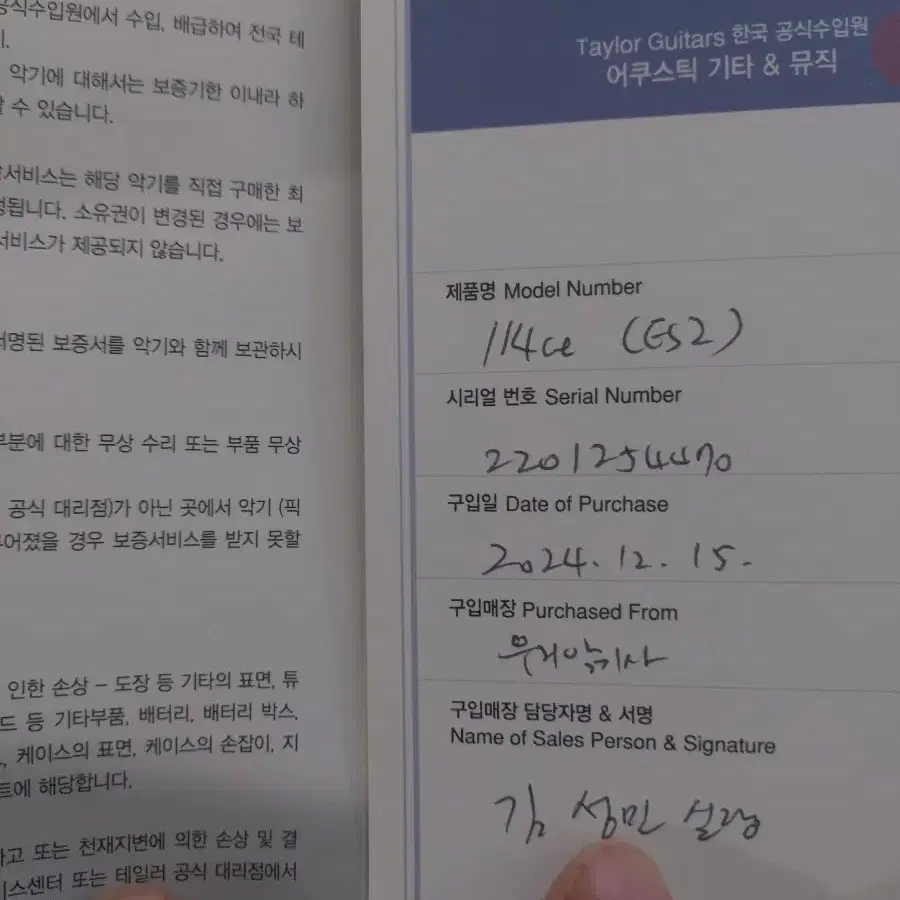 공식수입원에서 수입, 배급하여 전국 테
악기에 대해서는 보증기한 이내라 하
수 있습니다.
서비스는 해당 악기를 직접 구매한 최
정됩니다. 소유권이 변경된 경우에는 보
서비스가 제공되지 않습니다.
서명된 보증서를 악기와 함께 보관하시
부분에 대한 무상 수리 또는 부품 무상
공식 대리점)가 아닌 곳에서 악기 (픽
경우 보증서비스를 받지 못할
인한 손상 – 도장 등 기타의 표면, 튜
드 등 기타부품, 배터리, 배터리 박스,
케이스의 표면, 케이스의 손잡이, 지
트에 해당합니다.
또는 천재지변에 의한 손상 및 결
비스센터 또는 테일러 공식 대리점에서
Taylor Guitars 한국 공식수입원
어쿠스틱 기타 & 뮤직
제품명 Model Number
114ce (ES2)
시리얼 번호 Serial Number
2201254470
구입일 Date of Purchase
2024. 12. 15.
구입매장 Purchased From
악기사
구입매장 담당자명 & 서명
Name of Sales Person & Signature
김 성민 실장